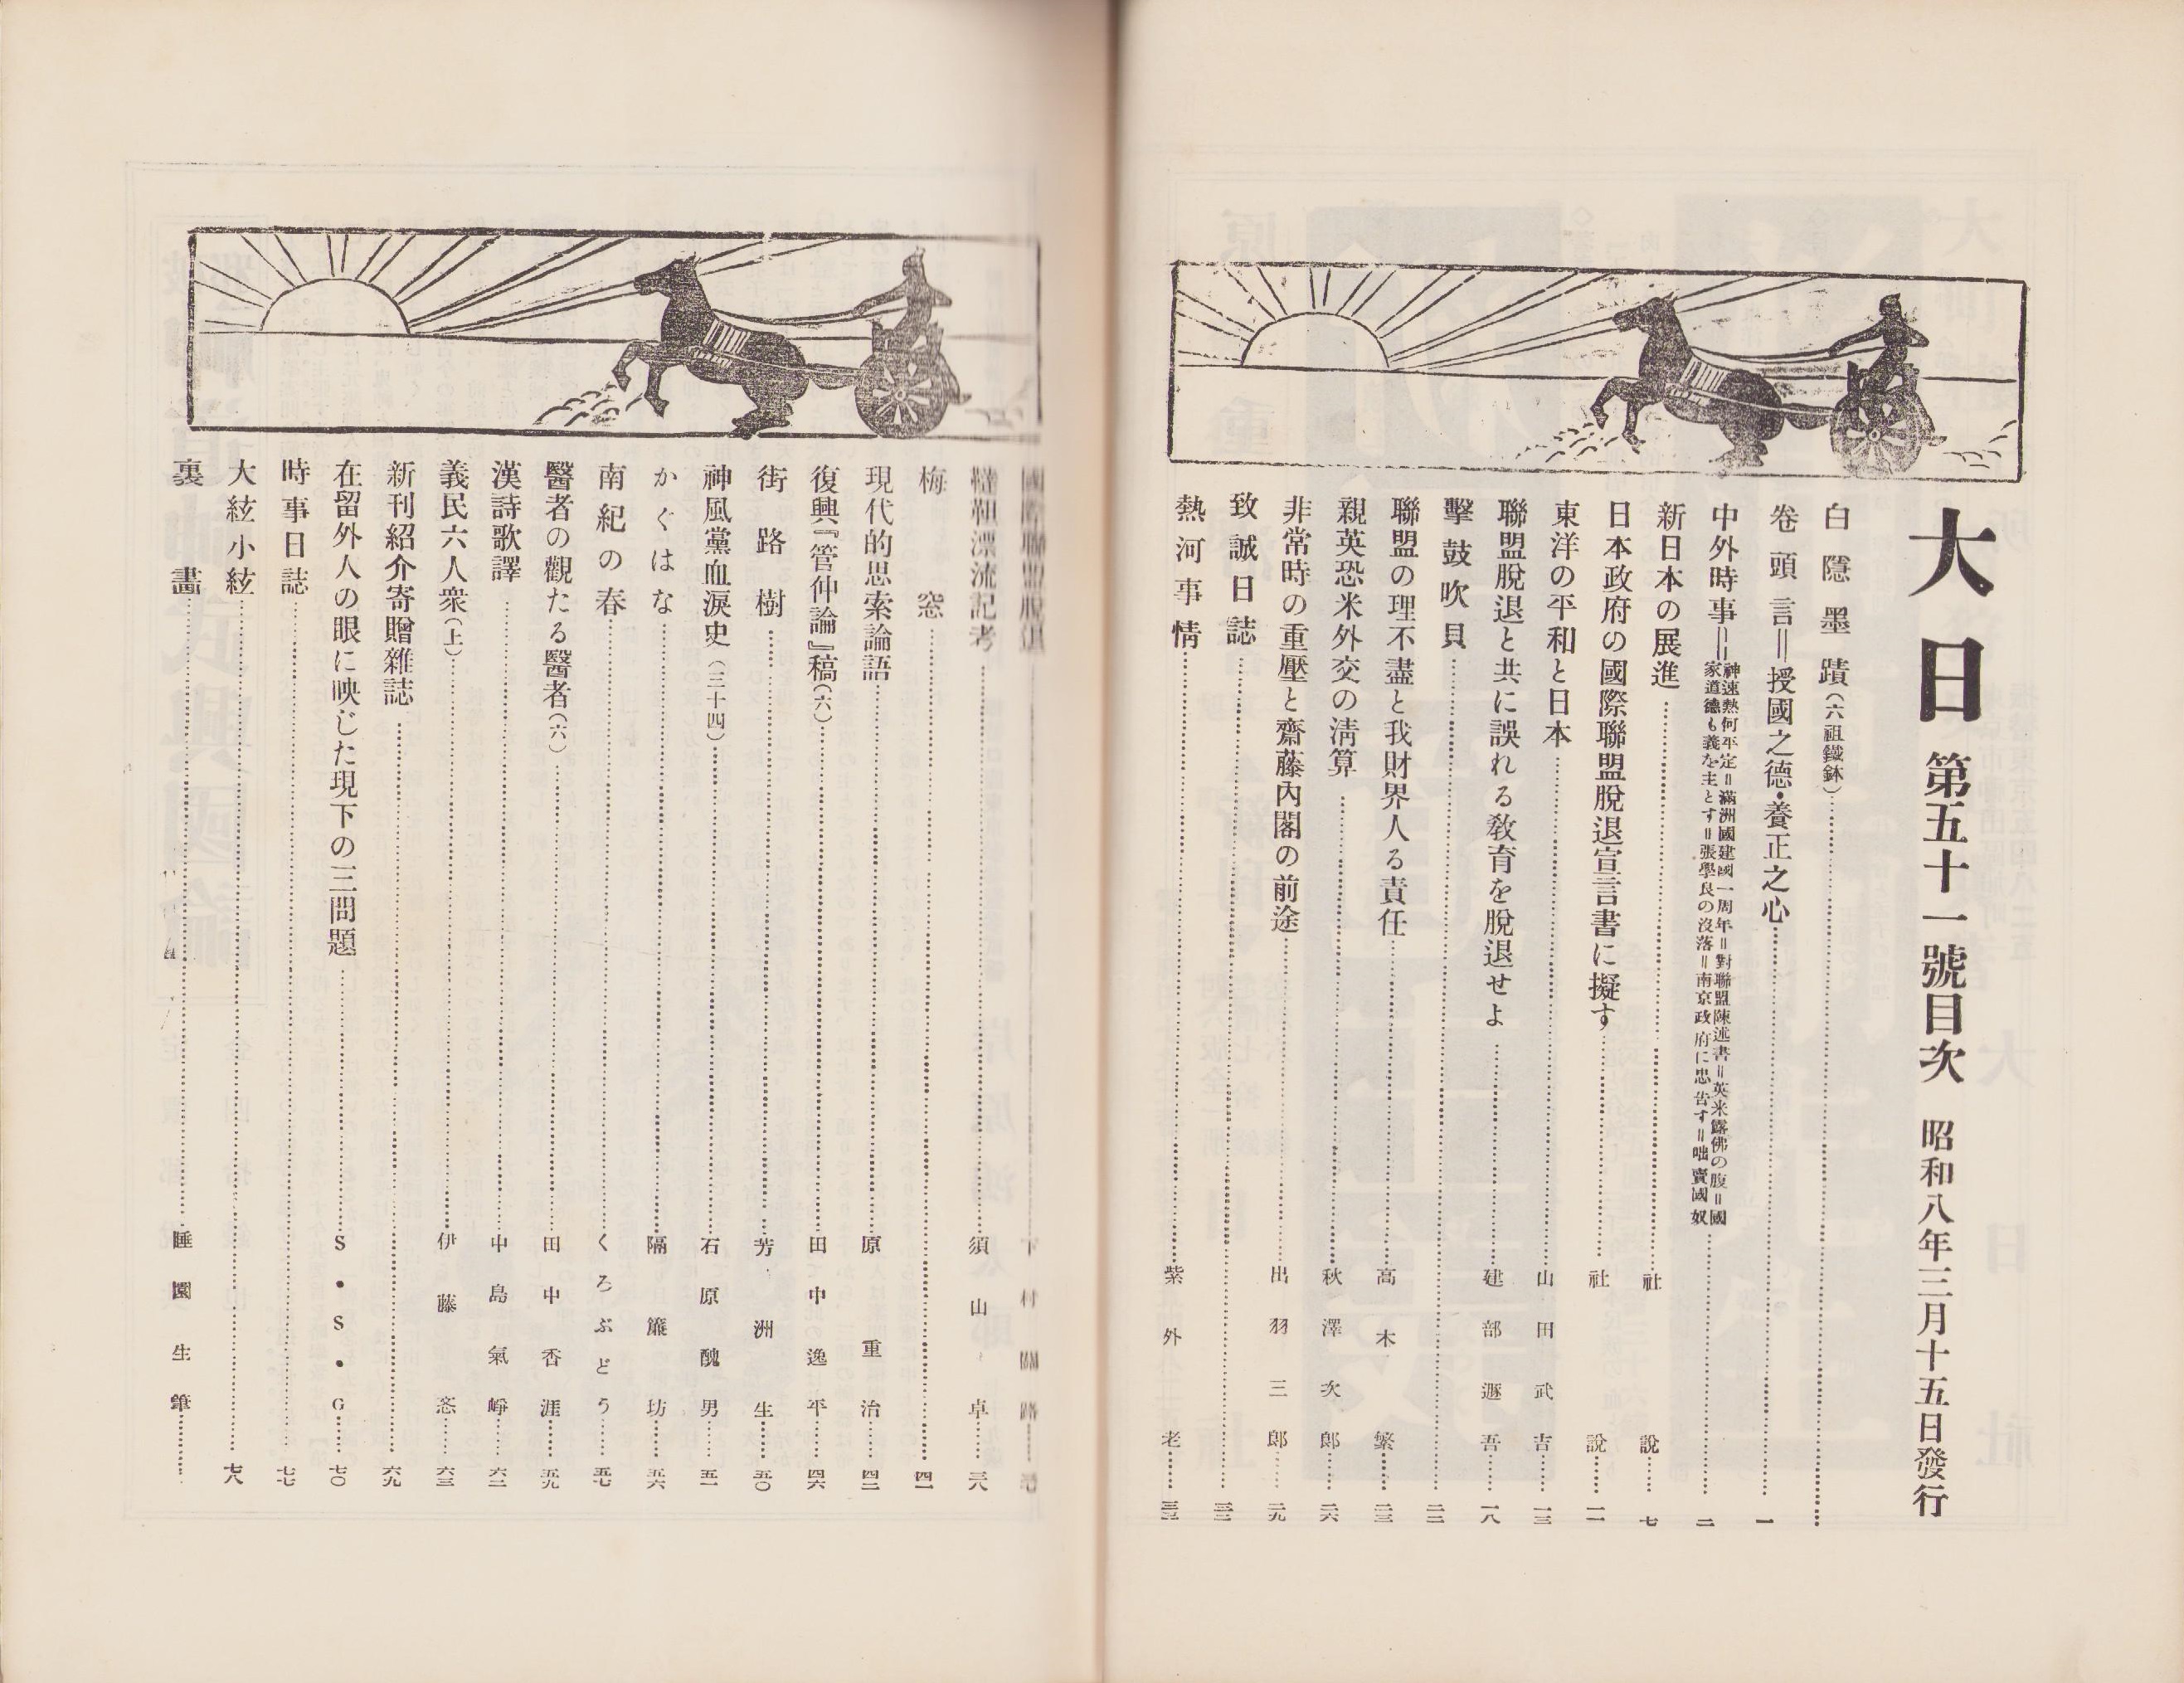 大日 第五十一號目次 昭和八年三月十五日發行
白隱墨蹟(六祖鐵鉢)
卷頭言＝授國之德・養正之心 一
中外時事＝神速熱河平定＝滿洲國建國一周年＝對聯盟陳述書＝英米露佛の腹＝國
家道德も義を主とす＝張學良の沒落＝南京政府に忠告す＝咄賣國奴 二
新日本の展進 社說 七
日本政府の國際聯盟脫退宣言書に擬す 社說 一一
東洋の平和と日本 山田武吉 一三
聯盟脫退と共に誤れる敎育を脫退せよ 建部遯吾 一八
擊鼓吹貝 二二
聯盟の理不盡と我財界人る責任 高木繁 二三
親英恐米外交の淸算 秋澤次郎 二六
非常時の重壓と齋藤內閣の前途 出羽三郎 二九
致誠日誌 三二
熱河事情 紫外老 三三
國際聯盟脫退 下村
韃靼漂流記考 須山卓 三八
梅窓 四一
現代的思索論語 原重治 四二
復興『管仲論』稿(六) 田中逸平 四六
街路樹 芳洲生 五〇
神風黨血淚史(三十四) 石原醜男 五一
かぐはな 隔簾坊 五六
南紀の春 くろぶどう 五七
醫者の觀たる醫者(六) 田中香涯 五九
漢詩歌譯 中島氣崢 六二
義民六人衆(上) 伊藤 六三
新刊紹介寄贈雜誌 六九
在留外人の眼に映じた現下の三問題 S・S・G 七〇
時事日誌 七七
大絃小絃 七八
裏畫 睡園生筆